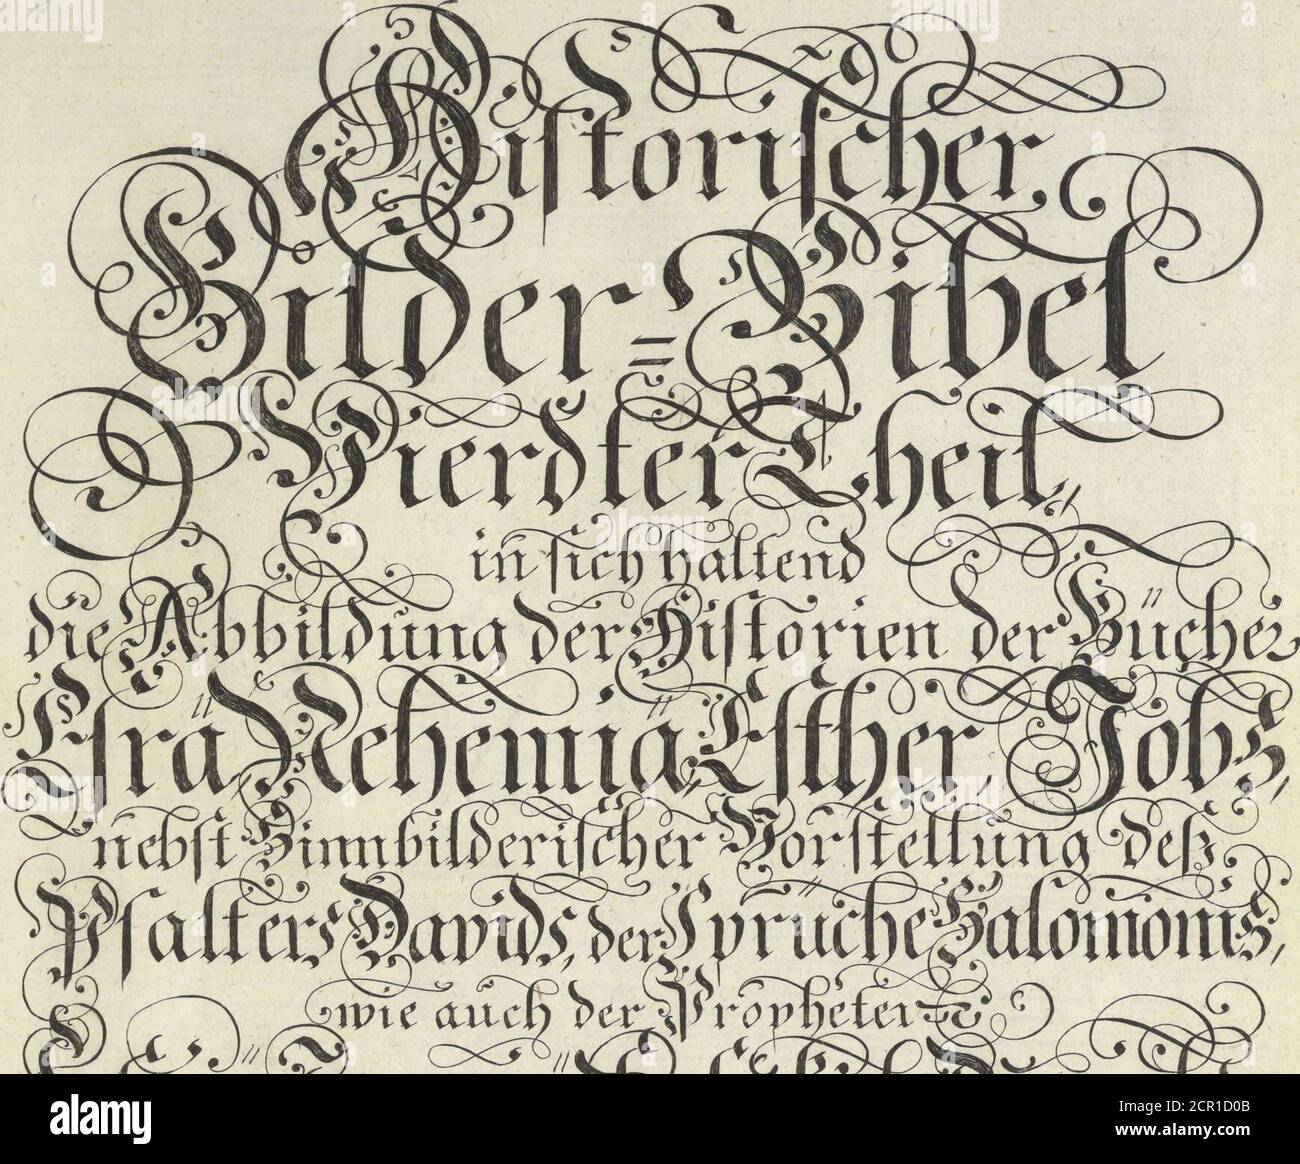 Historischer
Bilder=Bibel
Vierdter Theil,
in sich haltend
die Abbildung der Historien der Bücher
Esrä, Nehemiä, Esther, Jobs,
nebst Sinnbilderischer Vorstellung deß
Psalters Davids, der Sprüche Salomonis,
wie auch der Propheten
alamy
Image ID: 2CR1D0B
www.alamy.com